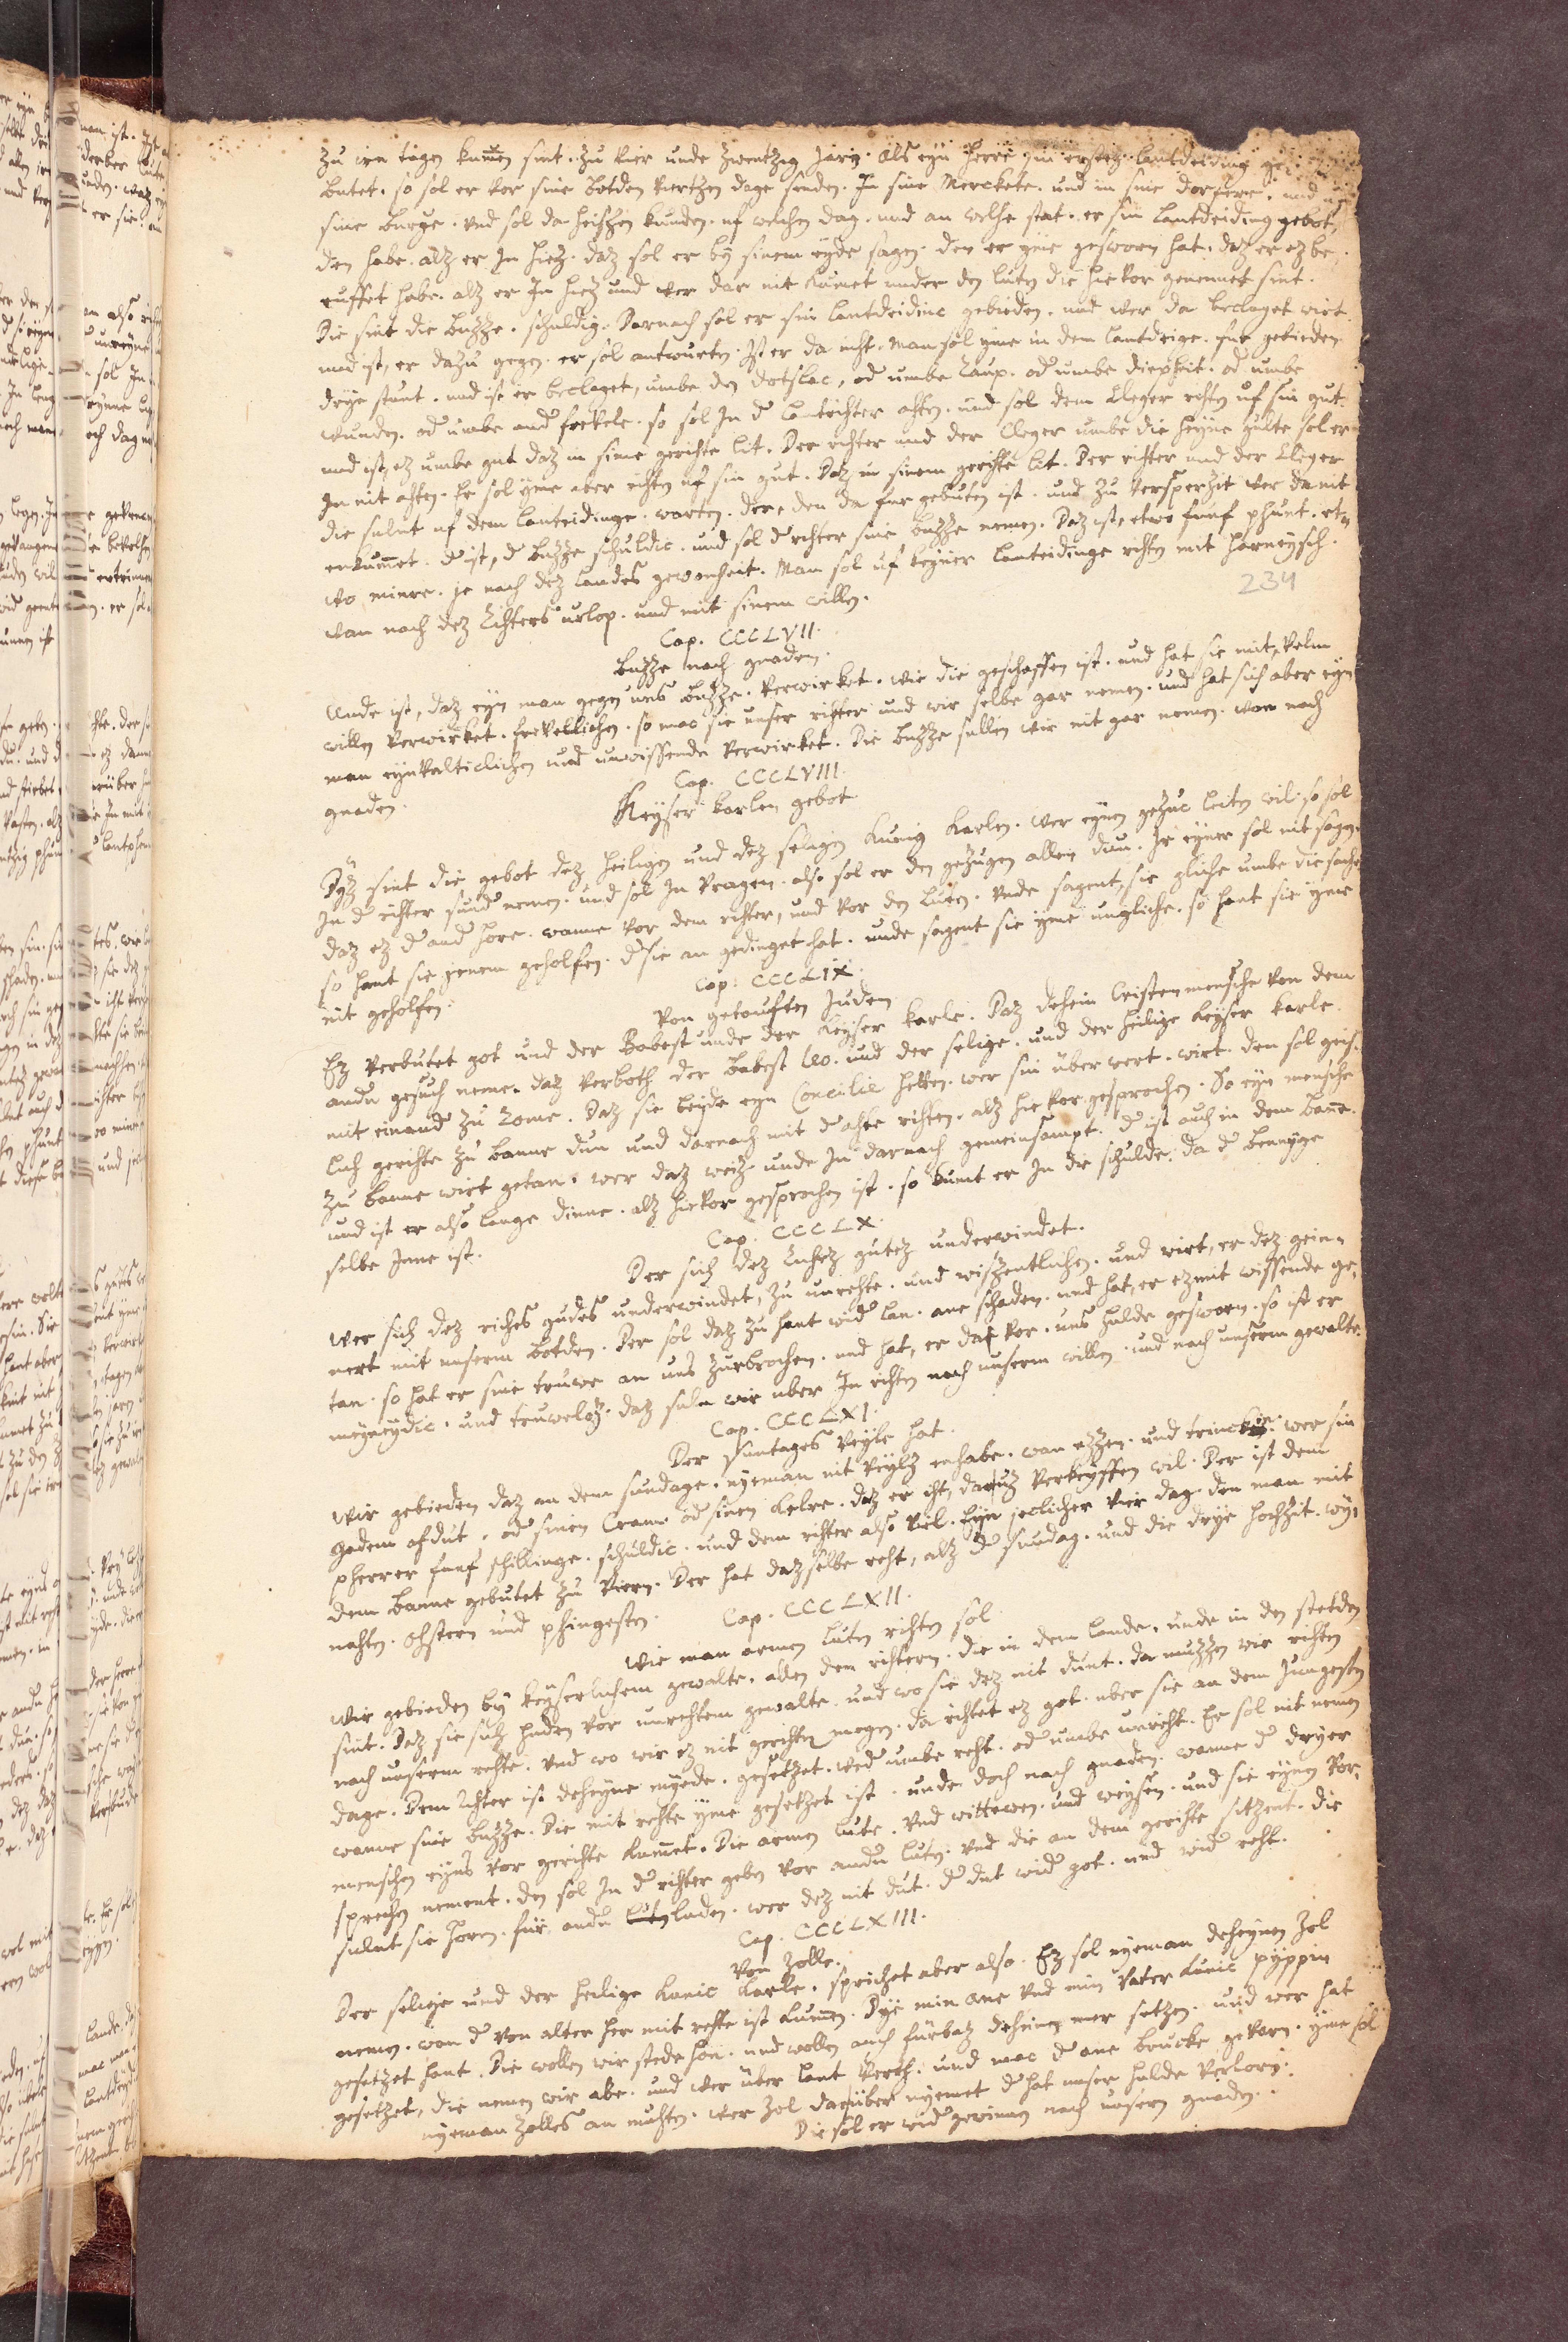 zu iren tagen kumen sint. zu vier unde zwentzig jaren. Als eyn herre sin erstez lantdeiding
butet. so sol er vor sine botden viertzen dage senden. In sine Merckete. und in sine dorfere. und uf
sine burge. und sol da heiszen kunden. uf welchen dag. und an welche stat. er sin lantdeiding gebot,
den habe. alz er In hiez. daz sol er by sinem eyde sagen. den er yme gesworn hat. daz er ez be,
ruffet habe. alz er In hiez und wer dar nit kumet under den luten die hie vor genennet sint.
Die sint die buzze. schuldig. Darnach sol er sin lantdeidinc gebieden. und wer da beclaget wirt.
und ist, er dazu gegen. er sol antwurten. Ist er da niht. Man sol yme in dem lantdeige. fur gebieden
drye stunt. und ist er beclaget, umbe den dotslac, od umbe raup. od umbe diepheit. od umbe
wunden. od umbe and frevele. so sol In d lantrihter ahten. und sol dem Cleger rihten uf sin gut.
und ist, ez umbe gut daz in sime gerichte lit. Der richter und der Cleger umbe die heyne gulte sol er
In nit ahten. Er sol yme aber rihten uf sin gut. Daz in sinem gerihte lit. Der richter und der Cleger
die sulnt uf dem lanteidinge. warten. dere, den da fur gebuten ist. und zu vesperzit wer da nit
enkumet. d ist, d buzze schuldic. und sol d richter sine buzze nemen. Daz ist, etwo funf phunt. et,
wo minre. je nach dez landes gewonheit. Man sol uf keyner lanteidinge rihten mit harneysch.
wan nach dez rihters urlop. und mit sinem willen.
234
Cap. CCCLVII.
Buzze nach gnaden.
Unde ist, daz eyn man gegen uns buzze. verwirket. wie die geschaffen ist. und hat sie mit, velm
willen verwirket. frevellichen. so mac sie unser rihter und wir selbe gar nemen. und hat sich aber eyn
man eynvalticlichen und unwissende verwirket. Die buzze sullen wir nit gar nemen. wan nach
gnaden.
Cap. CCCLVIII.
Keyser karlen gebot
Dyz sint die gebot dez heiligen und dez seligen kunig karlen. wer eynen gezuc leiten wil. so sol
In d rihter sund nemen. und sol In vragen. also sol er den gezugen allen dun. Ir eyner sol nit sagen
daz ez d and hore. wanne vor dem rihter, und vor den luten. Unde sagent, sie gliche umbe die sache
so hant sie jenem geholfen. d sie an gedinget hat. unde sagent sie yme ungliche. so hant sie yme
nit geholfen.
Cap. CCCLIX.
Von getouften Juden
Ez verbutet got und der Babest unde der keyser karle. Daz dehein Cristenmensche von dem
andn gesuch neme. daz verboth der babest leo. und der selige. und der heilige keyser karle.
mit einand zu Rome. Daz sie beyde eyn Concilie hetten. wer sin uber wert. wirt. den sol geis.
lich gerihte zu banne dun und darnach mit d ahte rihten. alz hie vor gesprochen. So eyn mensche
zu banne wirt getan. wer daz weiz unde In darnach gemeinsampt. d ist auch in dem banne.
und ist er also lange dinne. alz hie vor gesprochen ist. so kumt er In die schulde. da d bennyge
selbe Inne ist.
Cap. CCCLX.
Der sich dez Riches gutez underwindet.
Wer sich dez riches gudes underwindet, zu unrehte. und wiszentlichen. und wirt, er dez gein,
nert mit unserm botden. Der sol daz zu hant wid lan. ane schaden. und hat, er ez mit wissende ge,
tan. so hat er sine truwe an uns zurbrochen. und hat, er da vor. uns hulde gesworn. so ist er
meyneydic. und truweloz. daz suln wir uber In rihten nach unserm willen. und nach unserm gewalte.
Cap. CCCLXI.
Der suntages veyle hat.
Wir gebieden daz an dem sundage. nyeman nit veylz enhabe. wan ezzen. und trincken. wer sin
gadem ufdut. od sinen Cram. od sinen kelre. daz er iht, daruz verkeyffen wil. Der ist dem
pherrer funf schillinge. schuldic. und dem rihter also viel. Eyn jeclicher vier dag. den man mit
dem banne gebutet zu viern. Der hat daz selbe reht, alz d sundag. und die drye hochzit. wy,
nahten. Ostern und phingesten.
Cap. CCCLXII.
Wie man armen luten rihten sol.
Wir gebieden by keyserlichem gewalte. allen den rihtern. die in dem lande. unde in den stetden
sint. Daz sie sich huden vor unrehtem gewalte. und wo sie dez nit dunt. da muzzen wir rihten
nach unserm rehte. Und wo wir ez nit gerihten mogen. da rihtet ez got. uber sie an dem Jungesten
dage. Dem Rihter ist deheyne myede. gesetzet. wed umbe reht. od umbe unreht. Er sol nit nemen
wanne sine buzze. Die mit rehte yme gesetzet ist. unde doch nach gnaden. wanne d dryer
menschen eyns vor gerihte kumet. Die armen lute. Und wittewen. und weysen. und sie eynen vor,
sprechen nement. den sol In d rihter geben vor andn luten. Und die an dem gerihte sitzent. die
sulnt sie horen. fur andn laden. wer dez nit dut. d dut wid got. und wid reht.
Cap. CCCLXIII.
Von Zolle.
Der selige und der heilige kunic karle. sprichet aber also. Ez sol nyeman deheynen zol
nemen. wan d von alter her mit rehte ist kumen. Dye min ane und min vater kunic pyppin
gesetzet hant. Die wollen wir stede han. und wollen auch furbaz deheinen mer setzen. und wer hat
gesetzet, die nemen wir abe. und wer uber lant verth. und mac d ane brucke gevarn. yme sol
nyeman zolles an muhten. wer zol daruber nyemet d hat unser hulde verlorn.
Die sol er wid gewinnen nach unsern gnaden.